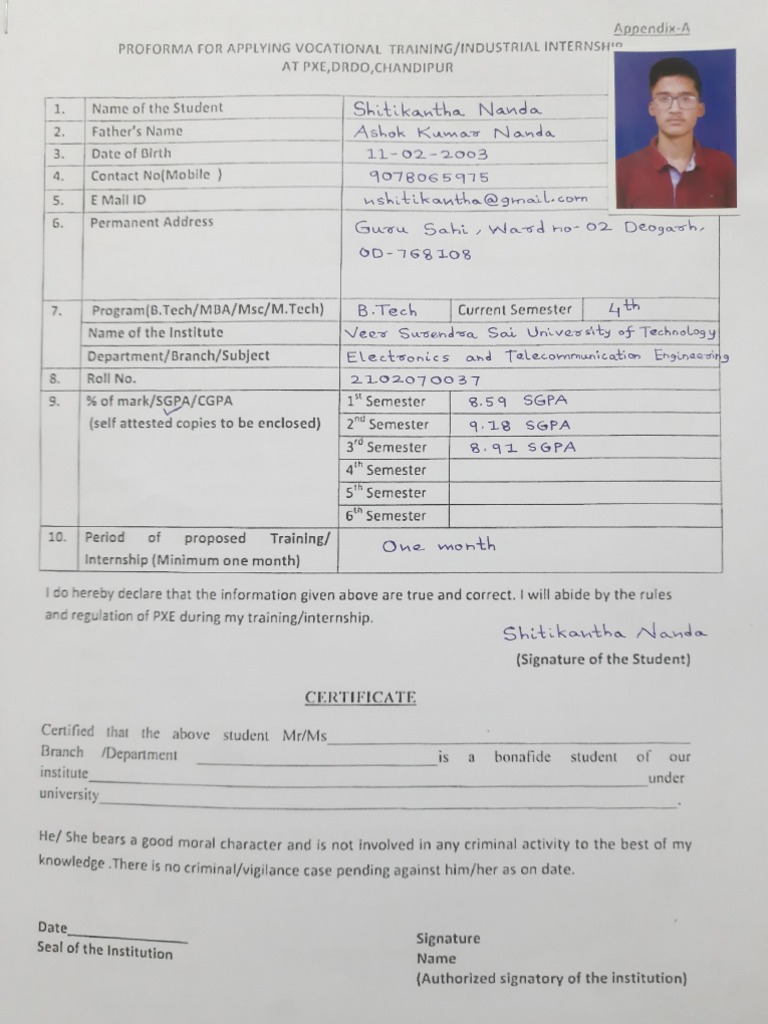 Appendix-A
PROFORMA FOR APPLYING VOCATIONAL TRAINING/INDUSTRIAL INTERNSHIP
AT PXE,DRDO,CHANDIPUR
1. Name of the Student Shitikantha Nanda
2. Father's Name Ashok Kumar Nanda
3. Date of Birth 11-02-2003
4. Contact No(Mobile ) 9078065975
5. E Mail ID nshitikantha@gmail.com
6. Permanent Address Guru Sahi, Ward no-02 Deogarh,
OD-768108
7. Program(B.Tech/MBA/Msc/M.Tech) B.Tech Current Semester 4th
Name of the Institute Veer Surendra Sai University of Technology
Department/Branch/Subject Electronics and Telecommunication Engineering
8. Roll No. 2102070037
9. % of mark/SGPA/CGPA 1st Semester 8.59 SGPA
(self attested copies to be enclosed) 2nd Semester 9.18 SGPA
3rd Semester 8.91 SGPA
4th Semester
5th Semester
6th Semester
10. Period of proposed Training/
Internship (Minimum one month) One month
I do hereby declare that the information given above are true and correct. I will abide by the rules
and regulation of PXE during my training/internship.
Shitikantha Nanda
(Signature of the Student)
CERTIFICATE
Certified that the above student Mr/Ms
Branch /Department is a bonafide student of our
institute under
university .
He/ She bears a good moral character and is not involved in any criminal activity to the best of my
knowledge .There is no criminal/vigilance case pending against him/her as on date.
Date
Seal of the Institution
Signature
Name
(Authorized signatory of the institution)